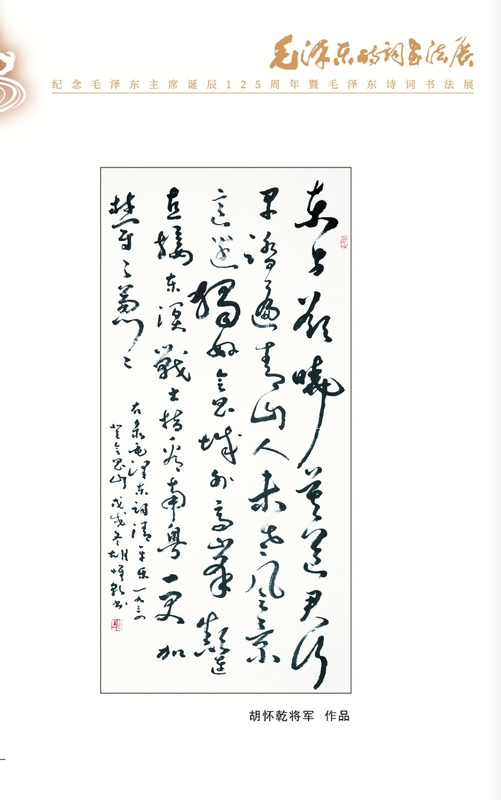 毛泽东诗词书法展
纪念毛泽东主席诞辰125周年暨毛泽东诗词书法展
东方欲晓莫道君行
早踏遍青山人未老风景
这边独好会昌城外高峯颠连
直接东溟战士指看南粤更加
欝々葱々
右录毛泽东词清平乐一九三四
登会昌山 戊戌冬胡怀乾书
胡怀乾将军 作品